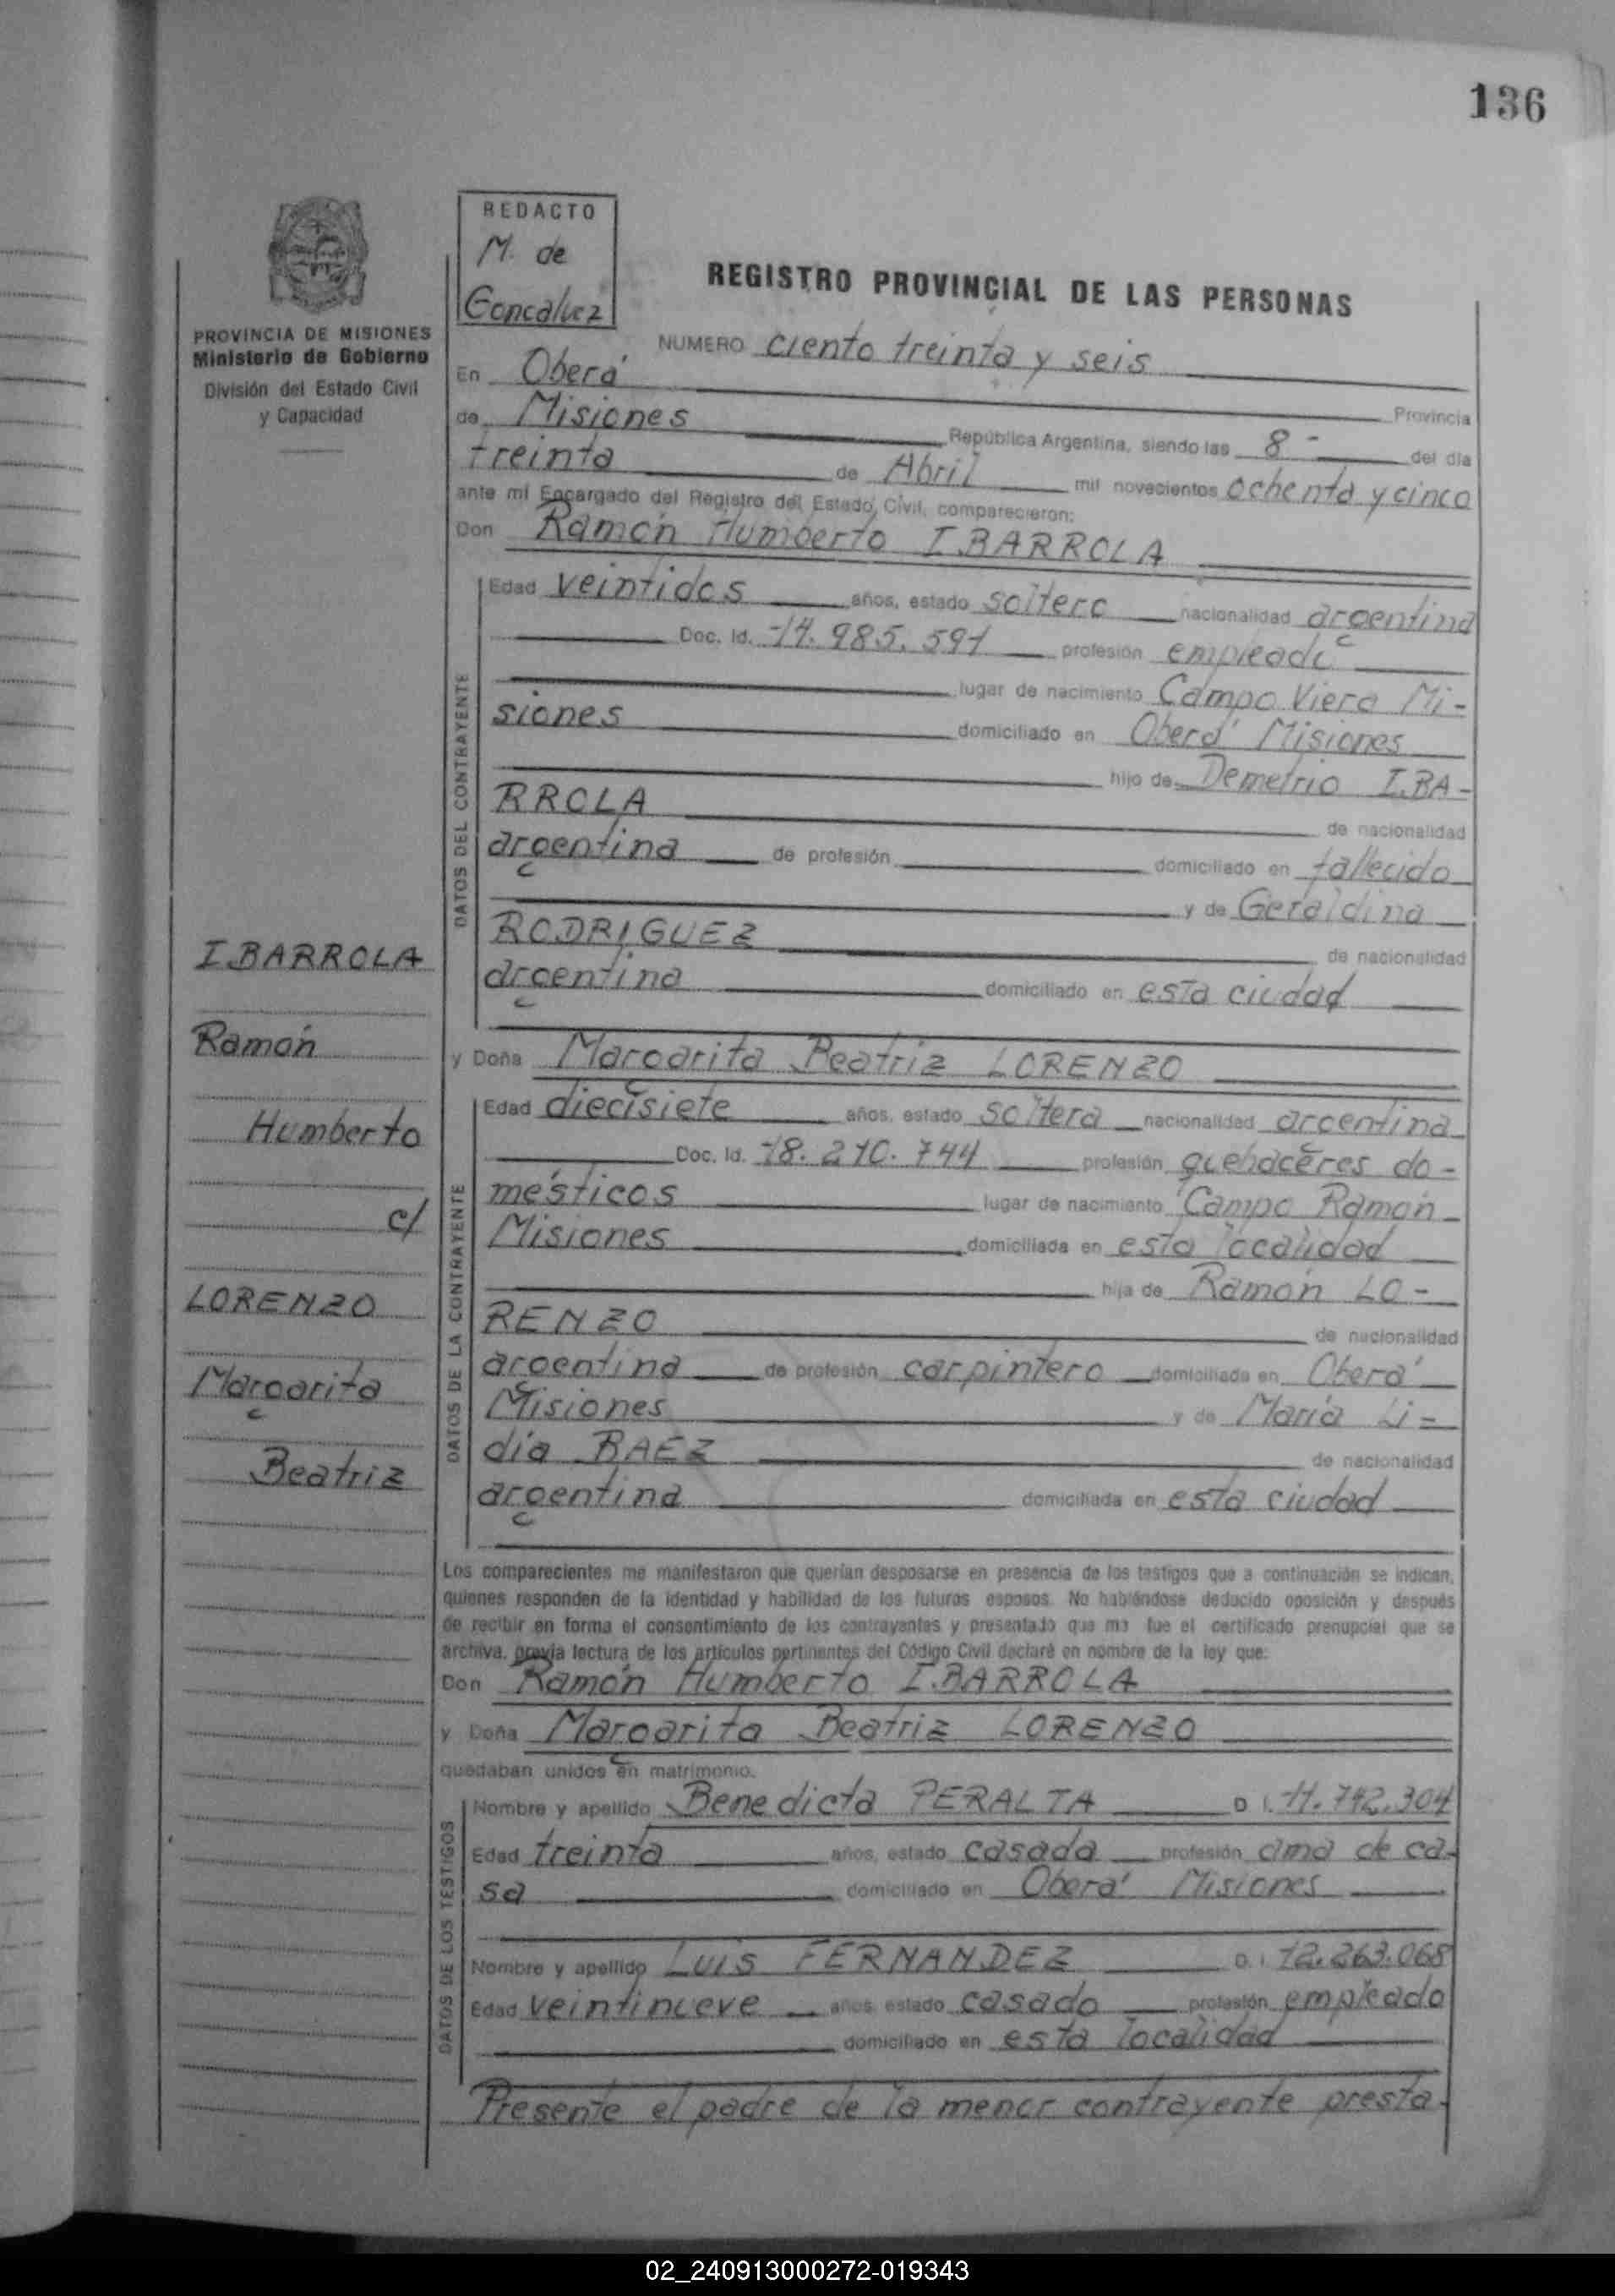 136
REDACTO
M. de
Goncalvez
PROVINCIA DE MISIONES
Ministerio de Gobierno
División del Estado Civil
y Capacidad
REGISTRO PROVINCIAL DE LAS PERSONAS
NUMERO ciento treinta y seis
En Oberá Provincia
de Misiones República Argentina, siendo las 8- del día
treinta de Abril mil novecientos ochenta y cinco
ante mí Encargado del Registro del Estado Civil, comparecieron:
Don Ramón Humberto IBARROLA
DATOS DEL CONTRAYENTE
Edad veintidos años, estado soltero nacionalidad argentina
Doc. Id. 14.985.591 profesión empleado
lugar de nacimiento Campo Viera Mi-
siones domiciliado en Oberá Misiones
hijo de Demetrio IBA-
RROLA de nacionalidad
argentina de profesión domiciliado en fallecido
y de Geraldina
RODRIGUEZ de nacionalidad
argentina domiciliado en esta ciudad
IBARROLA
Ramón
Humberto
c/
LORENZO
Margarita
Beatriz
y Doña Margarita Beatriz LORENZO
DATOS DE LA CONTRAYENTE
Edad diecisiete años, estado soltera nacionalidad argentina
Doc. Id. 18.210.744 profesión quehaceres do-
mésticos lugar de nacimiento Campo Ramón
Misiones domiciliada en esta localidad
hija de Ramón LO-
RENZO de nacionalidad
argentina de profesión carpintero domiciliado en Oberá
Misiones y de María Li-
dia BAEZ de nacionalidad
argentina domiciliada en esta ciudad
Los comparecientes me manifestaron que querían desposarse en presencia de los testigos que a continuación se indican,
quienes responden de la identidad y habilidad de los futuros esposos. No habiéndose deducido oposición y después
de recibir en forma el consentimiento de los contrayentes y presentado que me fue el certificado prenupcial que se
archiva, previa lectura de los artículos pertinentes del Código Civil declaré en nombre de la ley que:
Don Ramón Humberto IBARROLA
y Doña Margarita Beatriz LORENZO
quedaban unidos en matrimonio.
DATOS DE LOS TESTIGOS
Nombre y apellido Benedicta PERALTA D.I. 11.742.304
Edad treinta años, estado casada profesión ama de ca-
sa domiciliado en Oberá Misiones
Nombre y apellido Luis FERNANDEZ D.I. 12.263.068
Edad veintinueve años estado casado profesión empleado
domiciliado en esta localidad
Presente el padre de la menor contrayente presta
02_240913000272-019343